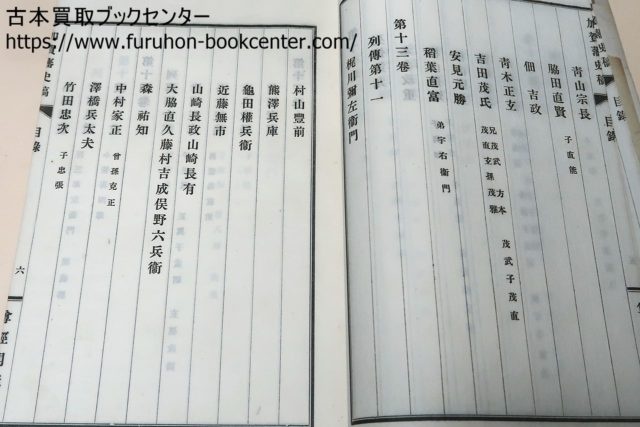 古本買取ブックセンター
https://www.furuhon-bookcenter.com/
加賀藩史稿
目錄
青山宗長
子直能
脇田直賢
佃吉政
青木正玄
兄茂武 方本 茂武子茂直
茂直玄孫茂雅
吉田茂氏
安見元勝
稻葉直富
弟宇右衞門
第十三卷
列傳第十一
梶川彌左衞門
村山豐前
熊澤兵庫
龜田權兵衞
近藤無市
山崎長政山崎長有
大脇直久藤村吉成俣野六兵衞
森祐知
中村家正
曾孫克正
澤橋兵太夫
竹田忠次
子忠張
藩史稿
目錄
六